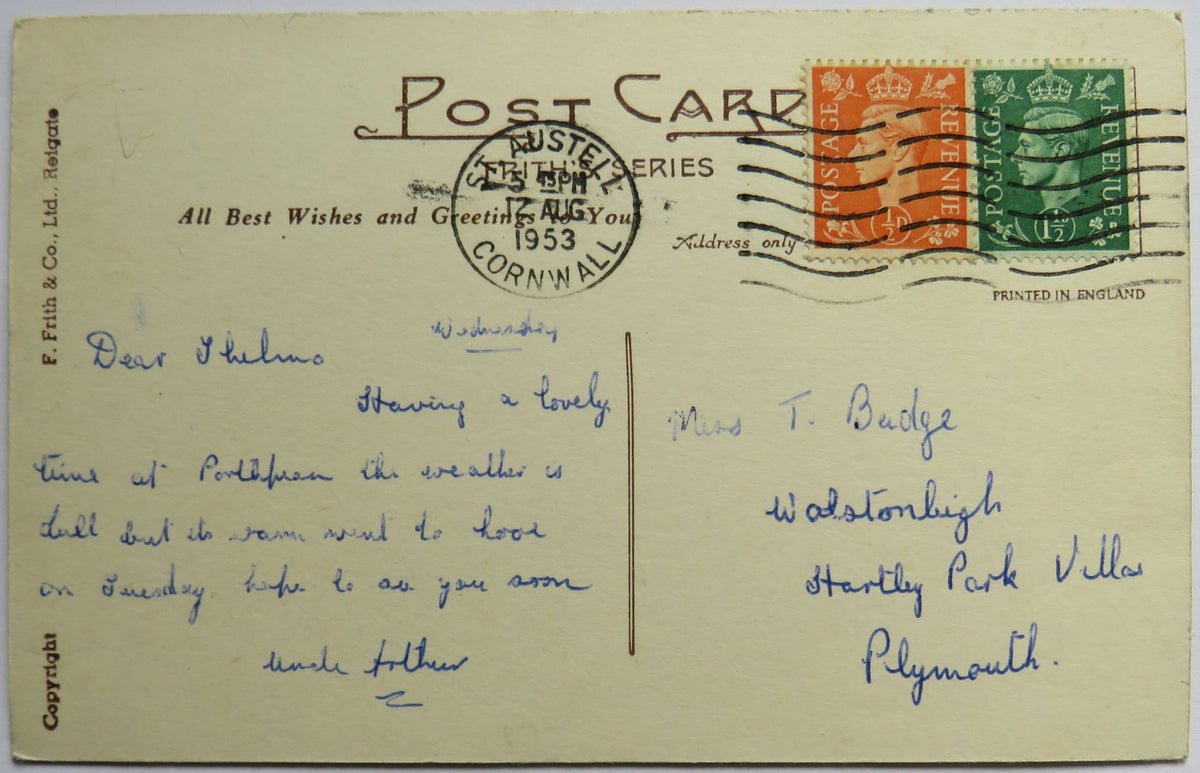 POST CARD
FRITH'S SERIES
All Best Wishes and Greetings to You
Address only
PRINTED IN ENGLAND
POSTAGE REVENUE ½D
POSTAGE REVENUE 1½
ST. AUSTELL
5 15 PM
12 AUG
1953
CORNWALL
F. Frith & Co., Ltd., Reigate
Copyright
Wednesday
Dear Thelma
Having a lovely
time at Porthpean the weather is
dull but its warm went to hooe
on Tuesday. hope to see you soon
Uncle Arthur
Miss T. Budge
Walstonleigh
Hartley Park Villas
Plymouth.